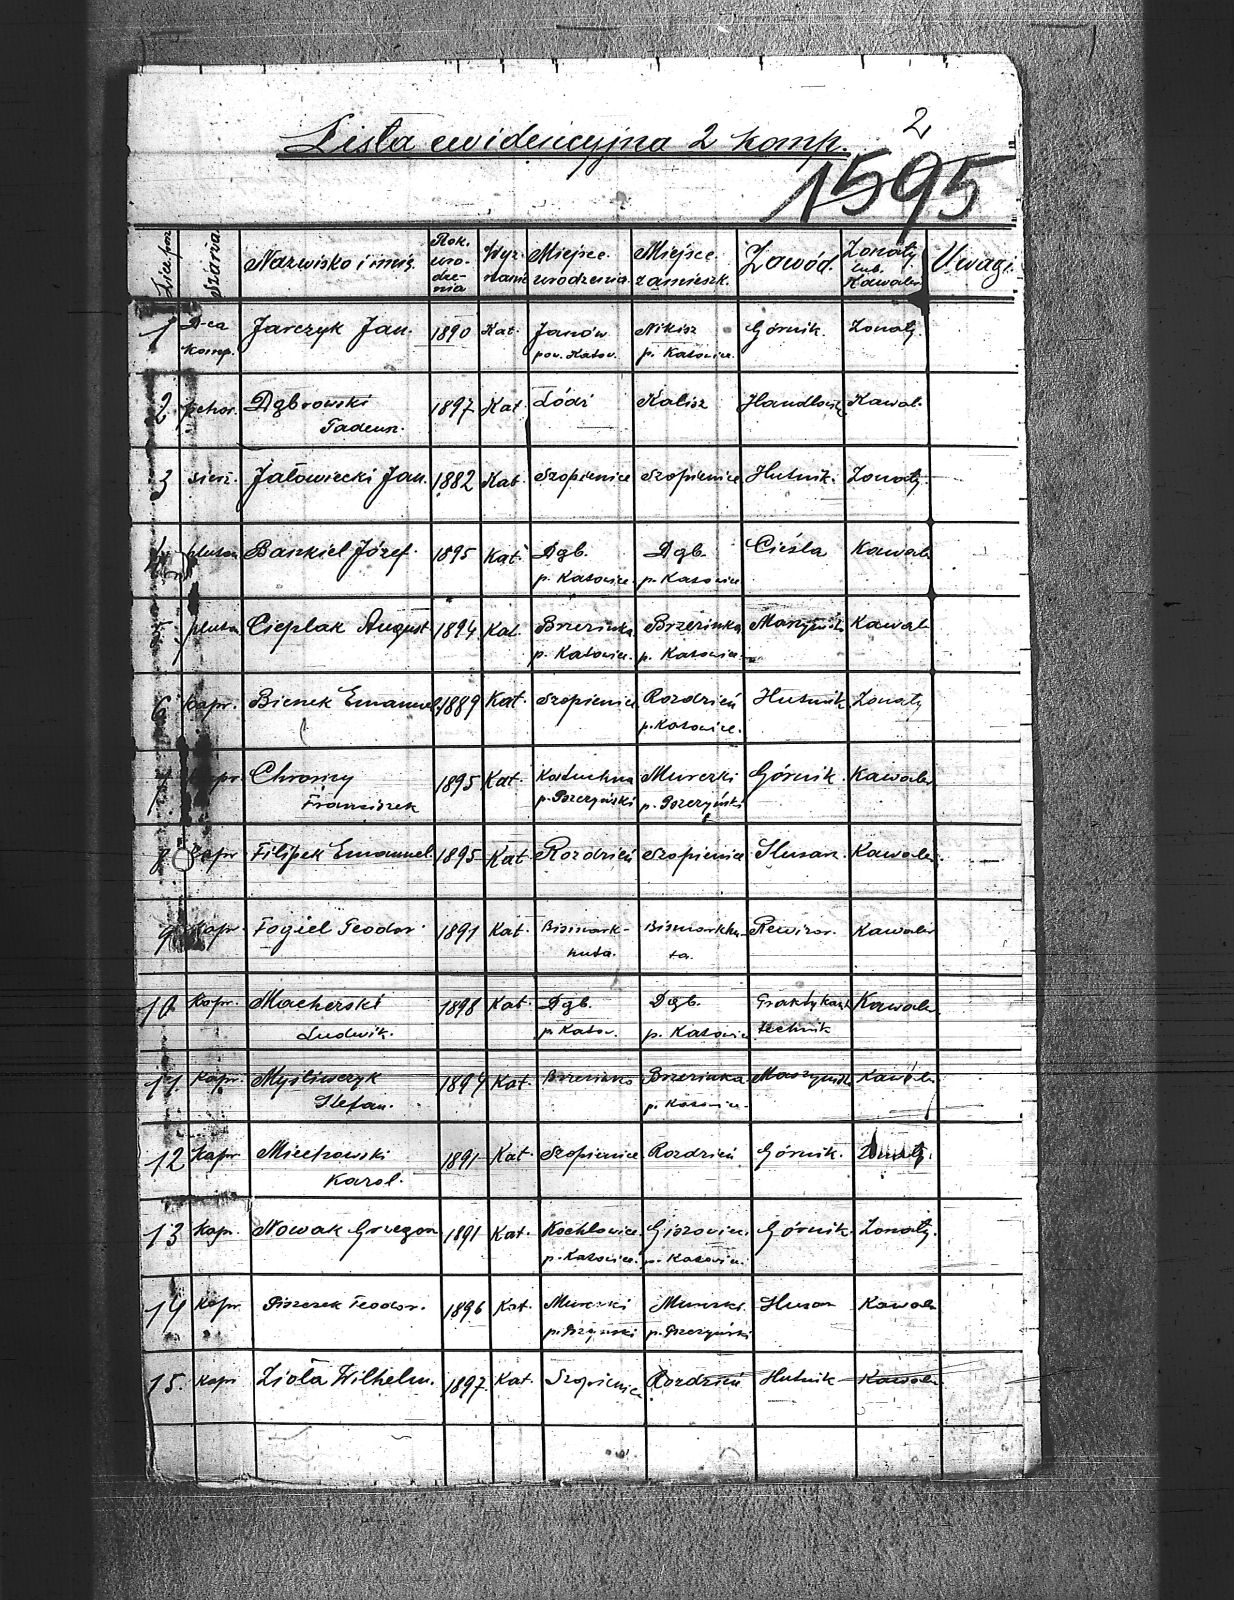 2
Lista ewidencyjna 2 komp.
1595
Szarża. Nazwisko i imię. Rok urodzenia Wyznanie Miejsce urodzenia Miejsce zamieszk. Zawód. Żonaty lub Kawaler Uwagi
1 D-ca komp. Jarczyk Jan. 1890 Kat. Janów pow. Katow. Nikisz p. Katowice. Górnik. Żonaty.
2 pchor. Dąbrowski Tadeusz. 1897 Kat Łódź Kalisz Kawal.
3 sierż. Jałowiecki Jan. 1882 Kat. Szopienice Szopienice Hutnik. Żonaty.
pluton Bankiel Józef. 1895 Kat Dąb. p. Katowice. Dąb. p. Katowice Cieśla Kawaler
pluton Cieplak August 1894 Kat. Brzezinka p. Katowice. Brzezinka p. Katowice. Maszynista Kawal
6 kapr. Bienek Emanuel 1889 Kat. Szopienice Rozdzień p. Katowice. Hutnik Żonaty
7 kapr. Chroszcz Franciszek 1895 Kat. Kostuchna p. Pszczyński Murczki p. Pszczyński Górnik Kawaler
8 kapr Filipek Emanuel 1895 Kat Rozdzień Szopienice Ślusarz. Kawaler
9 kapr. Fogiel Teodor. 1891 Kat. Bismark-huta. Bismarkhuta. Rewizor. Kawaler
10. Kapr. Macherski Ludwik. 1898 Kat Dąb. p. Katow. Dąb. p. Katowice Praktykant technik Kawaler
11. Kapr. Myśliwczyk Stefan. 1894 Kat. Brzezinka Brzezinka p. Katowice. Maszynista Kawaler
12 Kapr Miechowski Karol. 1891 Kat. Szopienice Rozdzień Górnik.
13 Kapr. Nowak Grzegorz 1891 Kat. Kochłowice p. Katowice. Giszowiec p. Katowice. Górnik Żonaty.
14 Kapr Piszczek Teodor. 1896 Kat. Murczki p. Pszczyński Murczki. p. Pszczyński Kawaler
15. Kapr Zioła Wilhelm. 1897. Kat. Szopienice Rozdzień Hutnik Kawaler